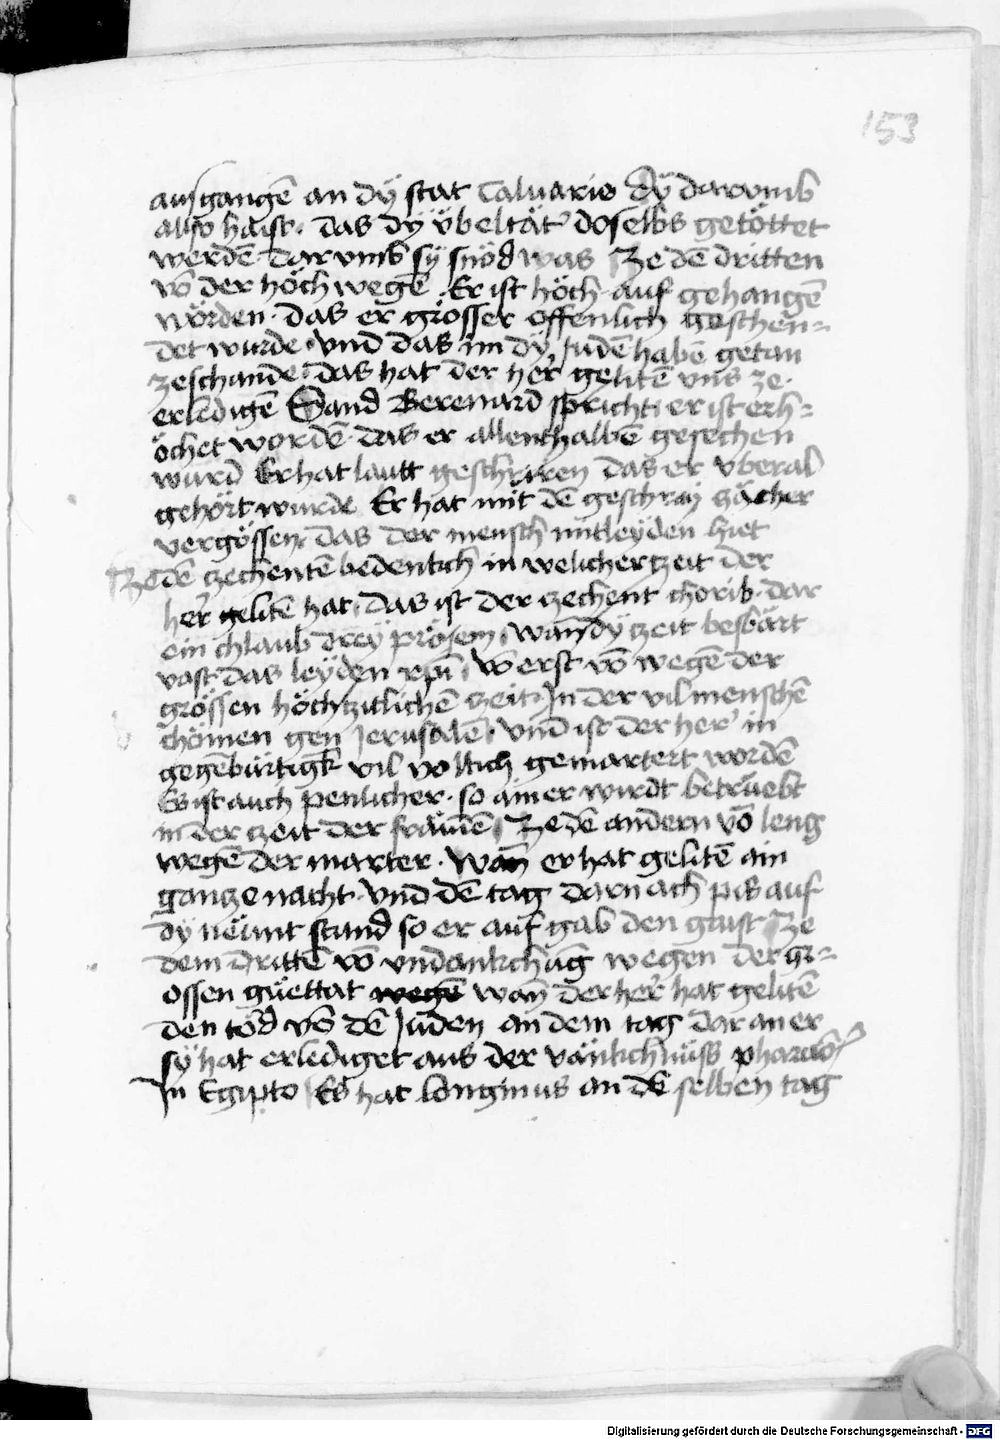 153
ausgangen̄ an dÿ stat Caluarie dÿ darvmb
also haist · das dÿ vbeltät' doselbs getöttet
werden̄ · darvmb sÿ snöd was Ze den̄ dritten
vō der höch wegen̄ · Er ist höch auf gehangen̄
wörden · das er grösser offenlich geschen=
det wurde · vnd das im dÿ Juden̄ haben̄ getan
zeschande · das hat der her' geliten̄ vns ze
erledigen̄ Sand Berenard spricht er ist erh=
öchet worden̄ · das er allenthalben̄ gesechen
wurd Er hat lautt geschriren das er vberal
gehört wurde Er hat mit den̄ geschray zächer
vergössen · das der mensch mitleyden hiet
Zeden̄ zechenten̄ bedenkch in welicher zeit der
her' geliten̄ hat · das ist der zechent chorib · dar
ein chlaub dreÿ prösem · wan̄ dÿ zeit beswärt
vast das leÿden xp̄i · vō erst vō wegen̄ der
grössen höchzitlichen̄ zeit · In der vil menschen̄
chömen gen Jerusalem̄ · vnd ist der her' in
gegenburtigk vil volkch gemartert worden̄
Es ist auch penlicher · so ainer wirdt betruebt
in der zeit der fräuden̄ Ze den̄ andern vō leng
wegen̄ der marter · wan̄ er hat geliten̄ ain
gancze nacht · vnd den̄ tag darnach pis auf
dÿ neunt stund so er auf gab den gaist Ze
dem dritten̄ vō vndankchūg wegen der gr=
ossen güettat wegen̄ wan̄ der her' hat geliten̄
den töd vō den̄ Juden an dem tag dar an er
sÿ hat erlediget aus der vänkchnüss pharaōis
In Egipto Es hat longinus an dē selben tag
Digitalisierung gefördert durch die Deutsche Forschungsgemeinschaft - DFG